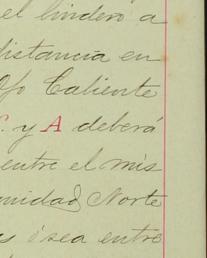 el lindero a
distancia en
Ojo Caliente
C. y A deberá
entre el mis
unidad Norte
ó sea entre